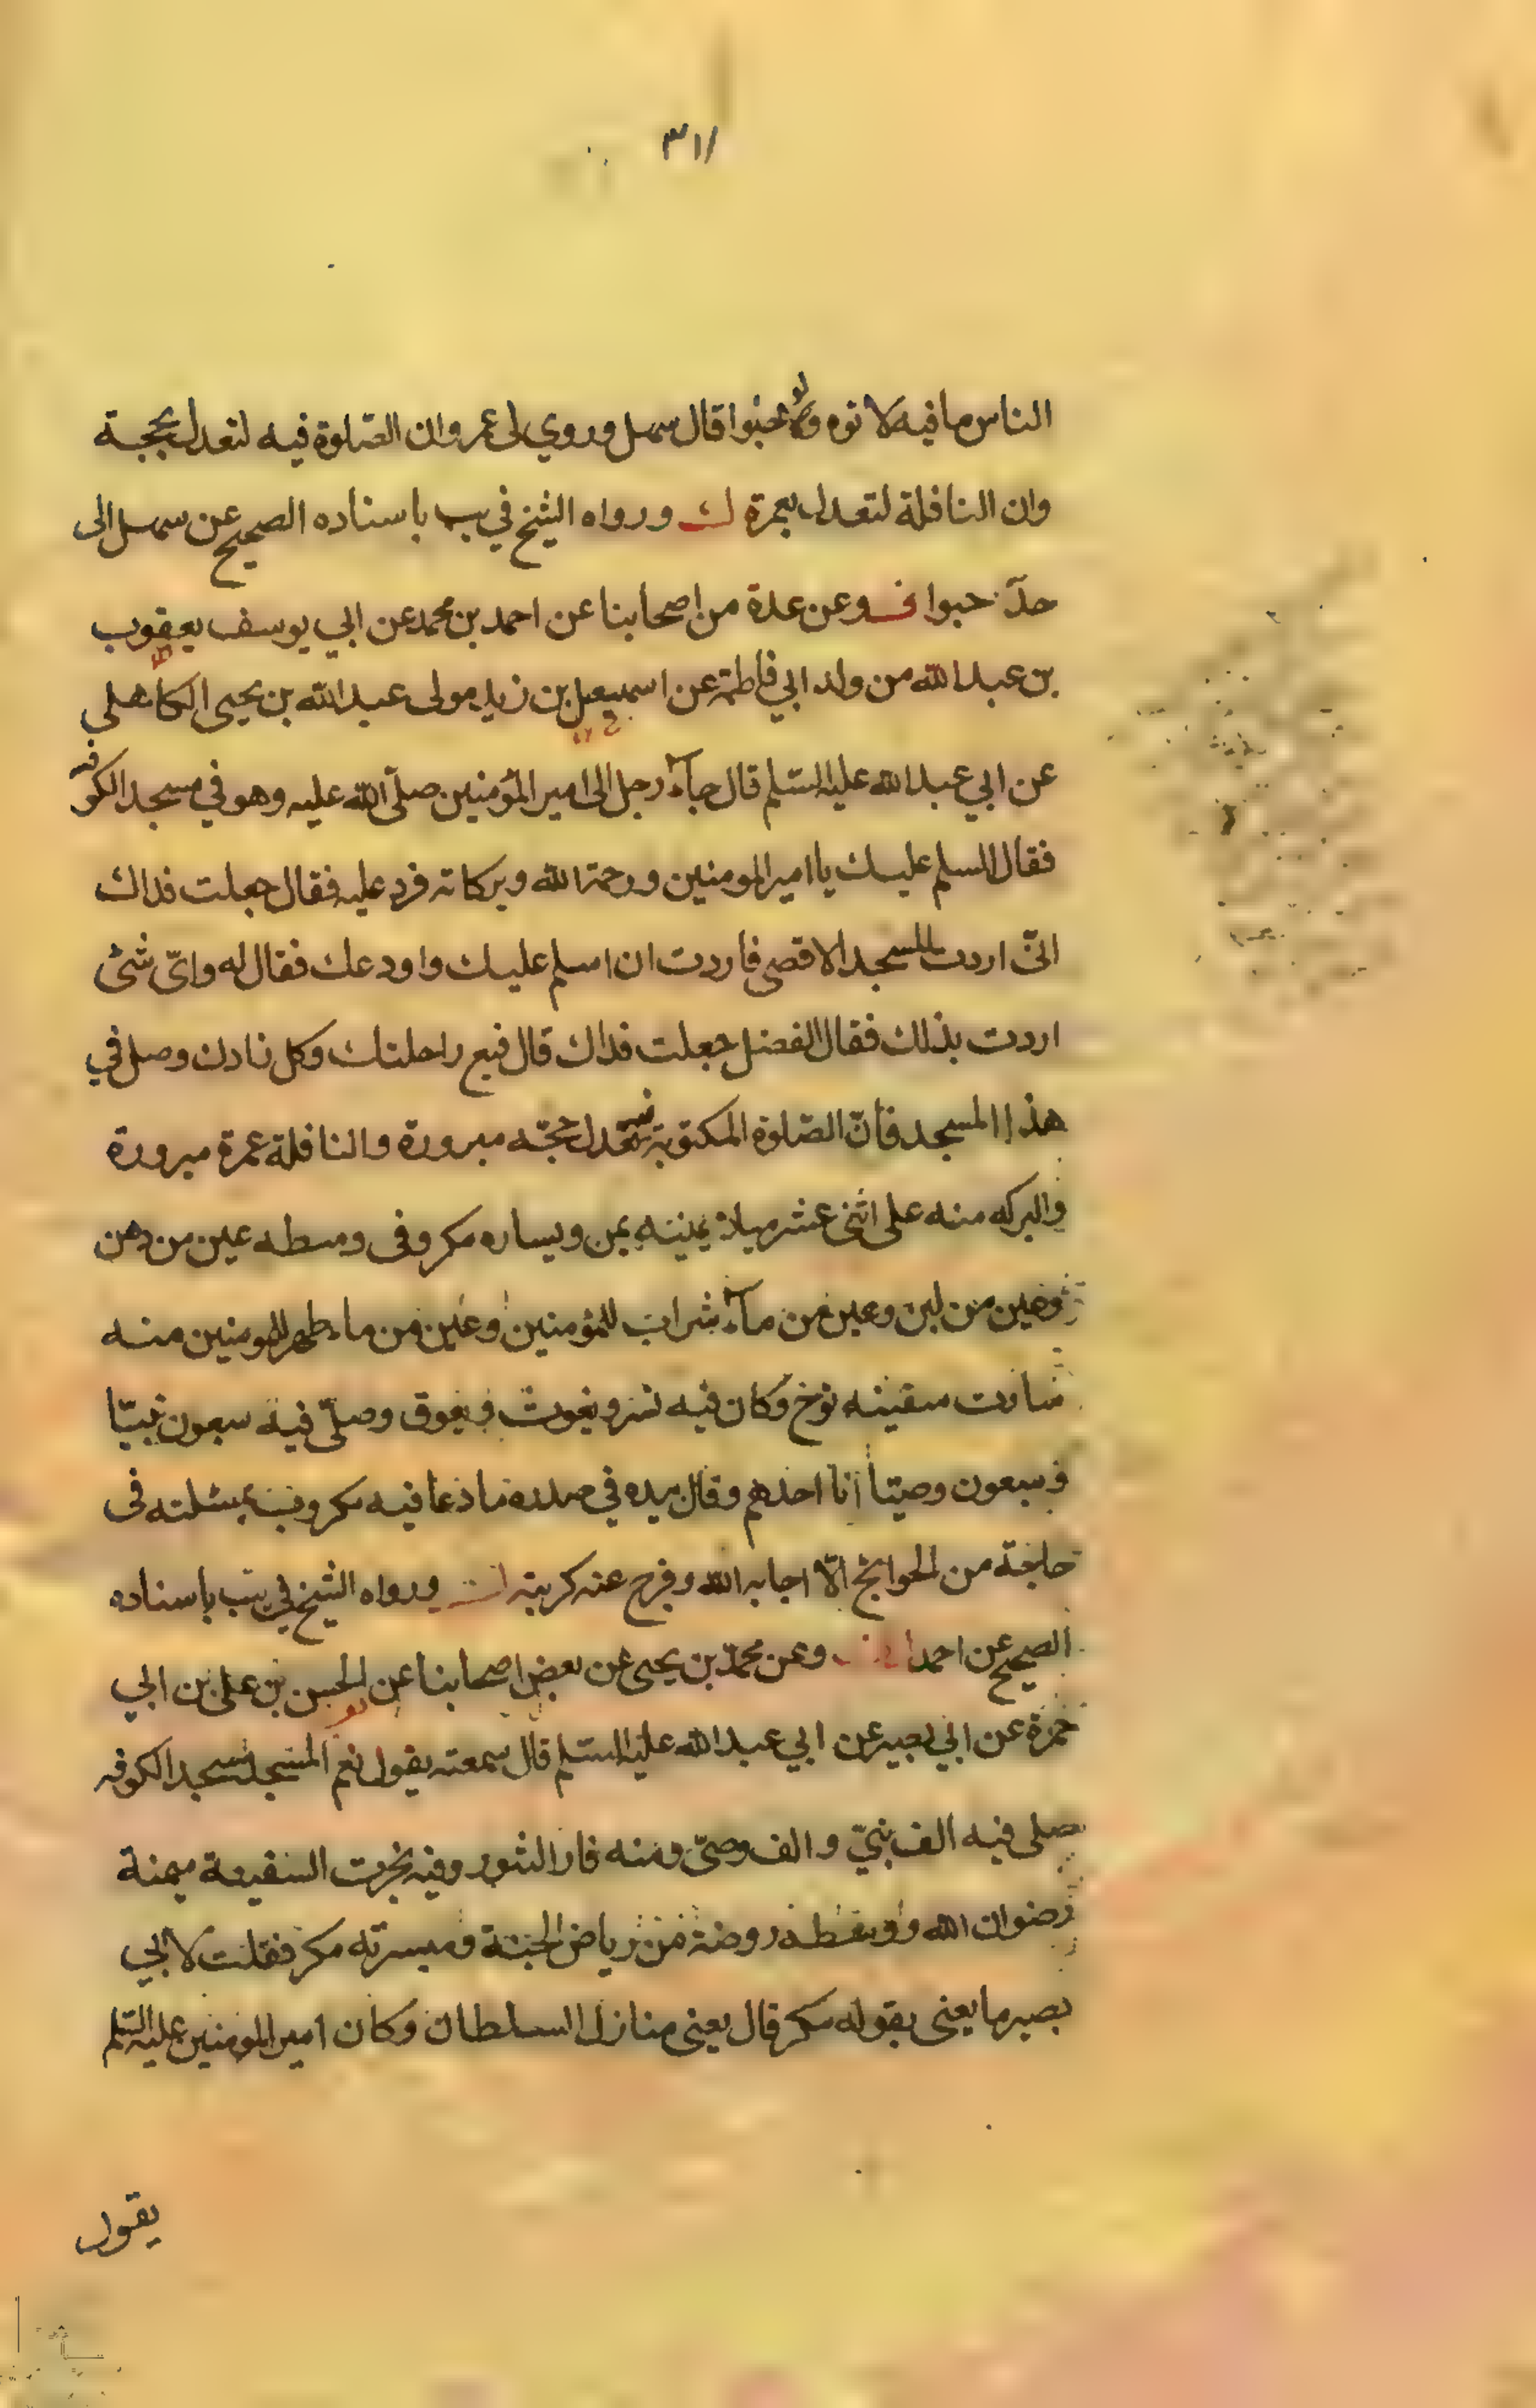 ٣١١
الناس ما فيه لاتوه ولو حبوا قال سهل وروي لي عمر وان الصلوة فيه لتعدل بحجة
وان النافلة لتعدل بعمرة ورواه الشيخ في يب باسناده الصحيح عن سهل الى
حدّ حبوا ف وعن عدة من اصحابنا عن احمد بن محمد عن ابي يوسف يعقوب
بن عبد الله من ولد ابي فاطمة عن اسمعيل بن زيد مولى عبد الله بن يحيى الكاهلي
عن ابي عبد الله عليه السّلم قال جآء رجل الى امير المؤمنين صلّى الله عليه وهو في مسجد الكوفه
فقال السلم عليك يا امير المومنين ورحمة الله وبركاته فرد عليه فقال جعلت فداك
انّي اردت المسجد الاقصى فاردت ان اسلم عليك واودعك فقال له وايّ شئ
اردت بذلك فقال الفضل جعلت فداك قال فبع راحلتك وكل زادك وصل في
هذا المسجد فانّ الصّلوة المكتوبة حجّه مبرورة والنافلة عمرة مبرورة
والبركه منه على اثنى عشر ميلا يمينه يمن ويساره مكر وفى وسطه عين من دهن
وعين من لبن وعين من مآء شراب للمؤمنين وعين من ماء طهر للمومنين منه
سارت سفينه نوح وكان فيه نسر ويغوث ويعوق وصلّى فيه سبعون نبيّا
وسبعون وصيّا انا احدهم وقال بيده في صدره ما دعا فيه مكروب بمسئلته فى
حاجة من الحوائج الّا اجابه الله وفرج عنه كربته ورواه الشيخ في يب باسناده
الصحيح عن احمد وعن محمّد بن يحيى عن بعض اصحابنا عن الحسن بن على بن ابي
حمزة عن ابي بصير عن ابي عبد الله عليه السّلم قال سمعته يقول نعم المسجد مسجد الكوفه
صلى فيه الف نبيّ والف وصيّ ومنه فار التنور وفيه نجرت السفينة ميمنة
رضوان الله ووسطه روضة من رياض الجنة وميسرته مكر فقلت لابي
بصير ما يعنى بقوله مكر قال يعنى منازل السلطان وكان امير المومنين عليه السّلم
يقول